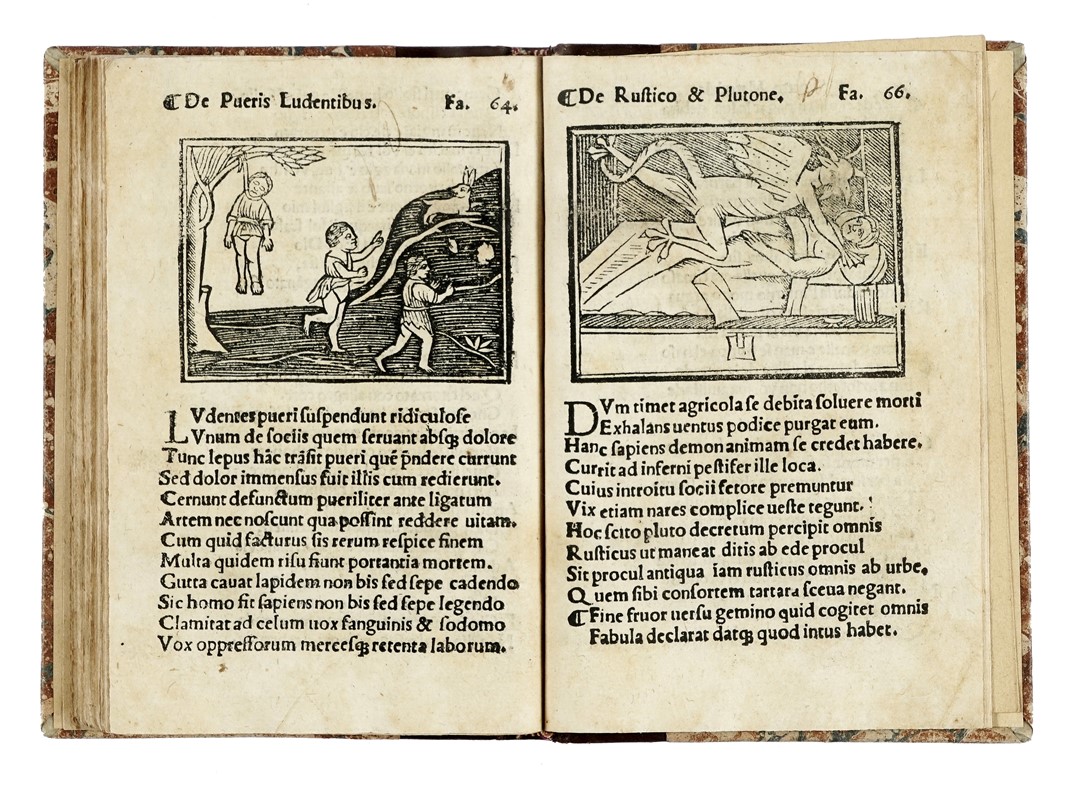 ¶De Pueris Ludentibus. Fa. 64.
LVdentes pueri suspendunt ridiculose
Vnum de sociis quem seruant absqꝫ dolore
Tunc lepus hâc trãsit pueri quẽ p̃ndere currunt
Sed dolor immensus fuit illis cum redierunt.
Cernunt defunctum pueriliter ante ligatum
Artem nec noscunt qua possint reddere uitam.
Cum quid facturus sis rerum respice finem
Multa quidem risu fiunt portantia mortem.
Gutta cauat lapidem non bis sed sepe cadendo
Sic homo fit sapiens non bis sed sepe legendo
Clamitat ad celum uox sanguinis & sodomo
Vox oppressorum mercesqꝫ retenta laborum.
¶De Rustico & Plutone. Fa. 66.
DVm timet agricola se debita soluere morti
Exhalans uentus podice purgat eum.
Hanc sapiens demon animam se credet habere.
Currit ad inferni pestifer ille loca.
Cuius introitu socii fetore premuntur
Vix etiam nares complice ueste tegunt.
Hoc scito pluto decretum percipit omnis
Rusticus ut maneat ditis ab ede procul
Sit procul antiqua iam rusticus omnis ab urbe.
Quem sibi consortem tartara sceua negant.
¶Fine fruor uersu gemino quid cogitet omnis
Fabula declarat datqꝫ quod intus habet.